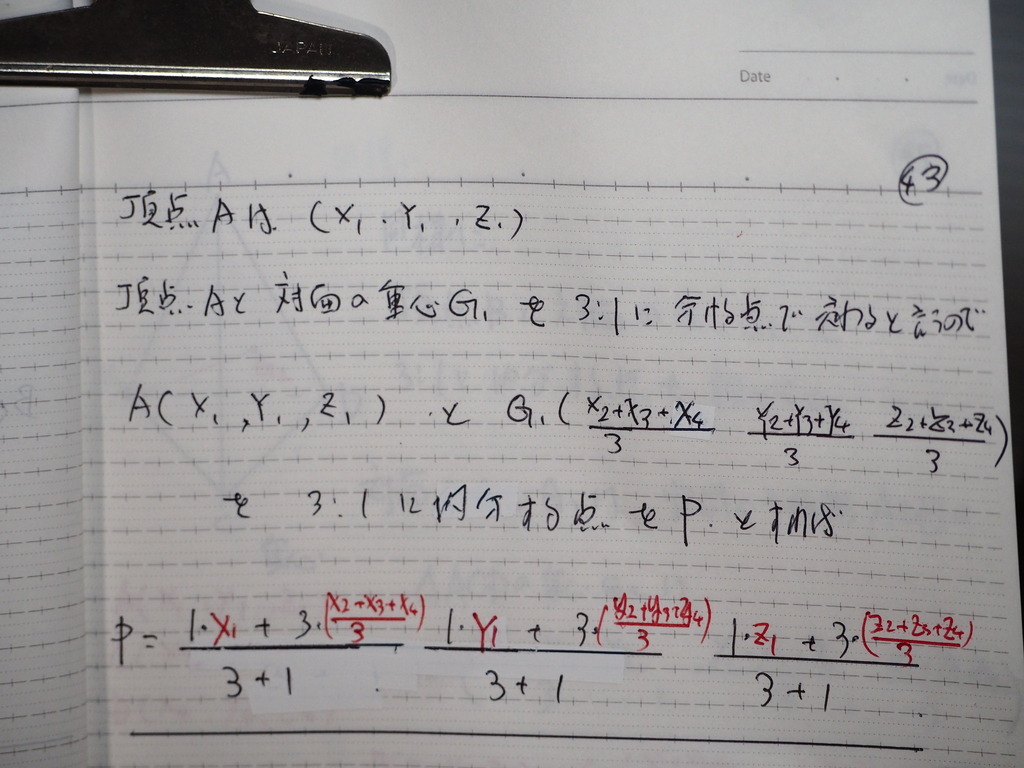 JAPAN
Date
43
頂点Aは (X₁, Y₁, Z₁)
頂点Aと 対面の重心G₁ を 3:1に 分ける点で 交わると言うので
A(X₁, Y₁, Z₁) と G₁((X₂+X₃+X₄)/3 (Y₂+Y₃+Y₄)/3 (Z₂+Z₃+Z₄)/3)
を 3:1 に内分する点 を P. とすれば
P = (1·X₁ + 3·((X₂+X₃+X₄)/3))/(3+1) (1·Y₁ + 3·((Y₂+Y₃+Y₄)/3))/(3+1) (1·Z₁ + 3·((Z₂+Z₃+Z₄)/3))/(3+1)